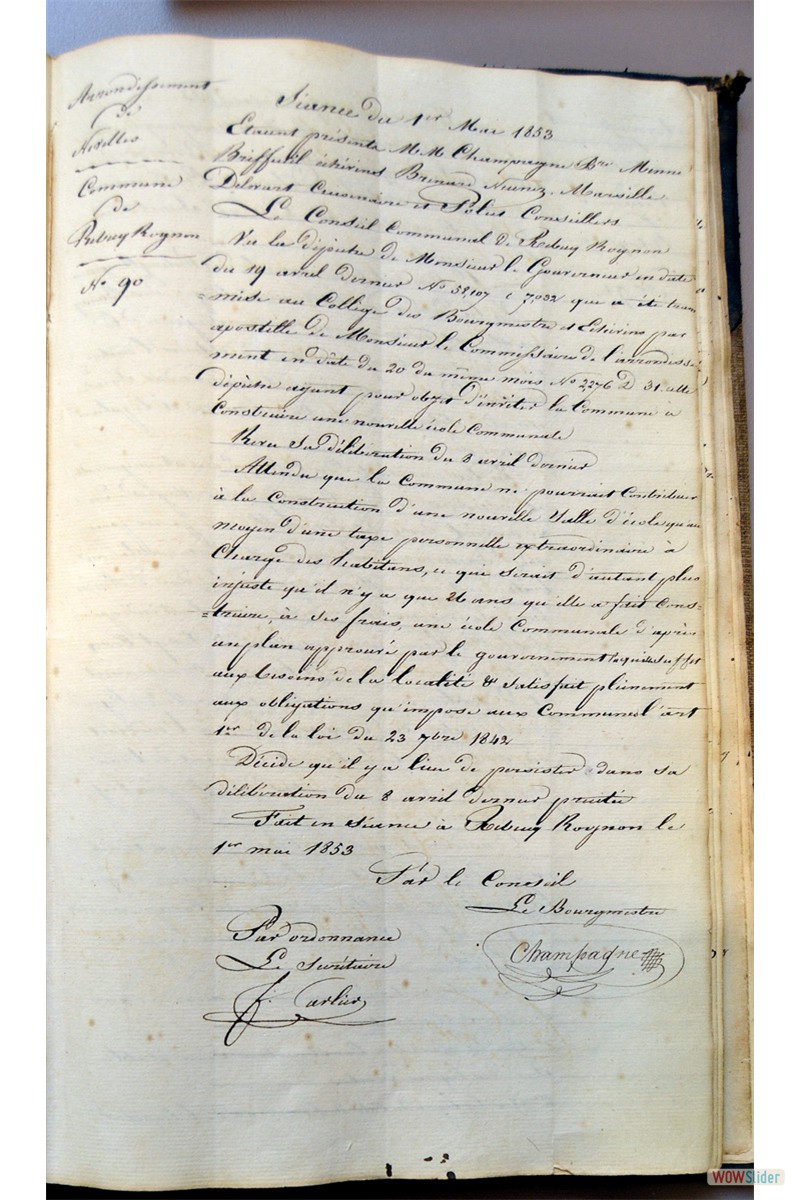 Arrondissement
de
Nivelles
Commune
de
Rebecq Rognon
N° 90
Séance du 1er Mai 1853
Etaient présents MM Champagne Bre Minne
Briffeuil échevins Brenard Marsille
Delvart et Conseillers
Le Conseil Communal de Rebecq Rognon
Vu la dépêche de Monsieur le Gouverneur en date
du 19 avril dernier N° 52,107 7,032 que a été trans
=mise au Collège des Bourgmestre et Echevins par
apostille de Monsieur le Commissaire de l'arrondisse
ment en date du 20 du même mois N° 2,276 D 31 cette
dépêche ayant pour objet d'inviter la Commune à
Construire une nouvelle école Communale
Revu sa délibération du 8 avril dernier
Attendu que la Commune ne pourrait Contribuer
à la Construction d'une nouvelle Salle d'école qu'au
moyen d'une taxe personnelle extraordinaire à
Charge des habitans, ce qui serait d'autant plus
injuste qu'il n'y a que 26 ans qu'elle a fait Cons=
=truire, à ses frais, une école Communale d'après
un plan approuvé par le gouvernement laquelle suffit
aux besoins de la localité & satisfait pleinement
aux obligations qu'impose aux Communes l'art
1er de la loi du 23 7bre 1842
Décide qu'il y a lieu de persister dans sa
délibération du 8 avril dernier précitée
Fait en séance à Rebecq Rognon le
1er mai 1853
Par le Conseil
Le Bourgmestre
Champagne
Par ordonnance
Le Secrétaire
f. Carlier
WOWSlider